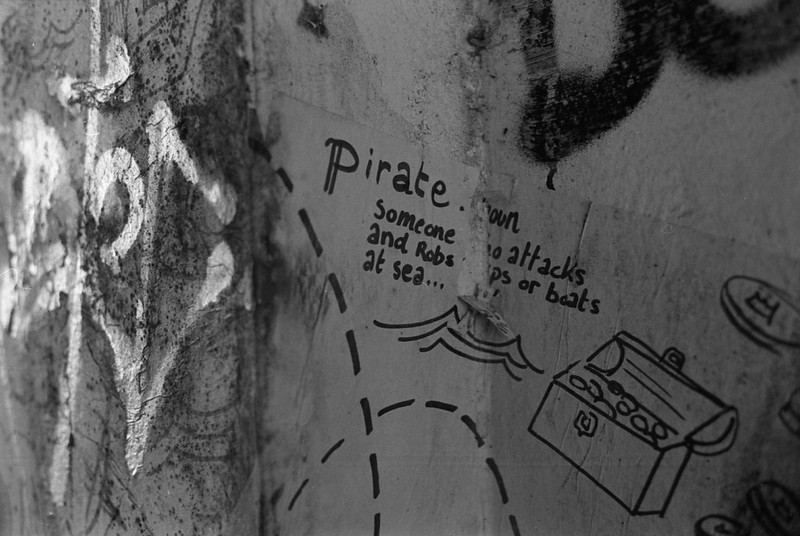 Pirate. oun
Someone o attacks
and Robs ps or boats
at sea...